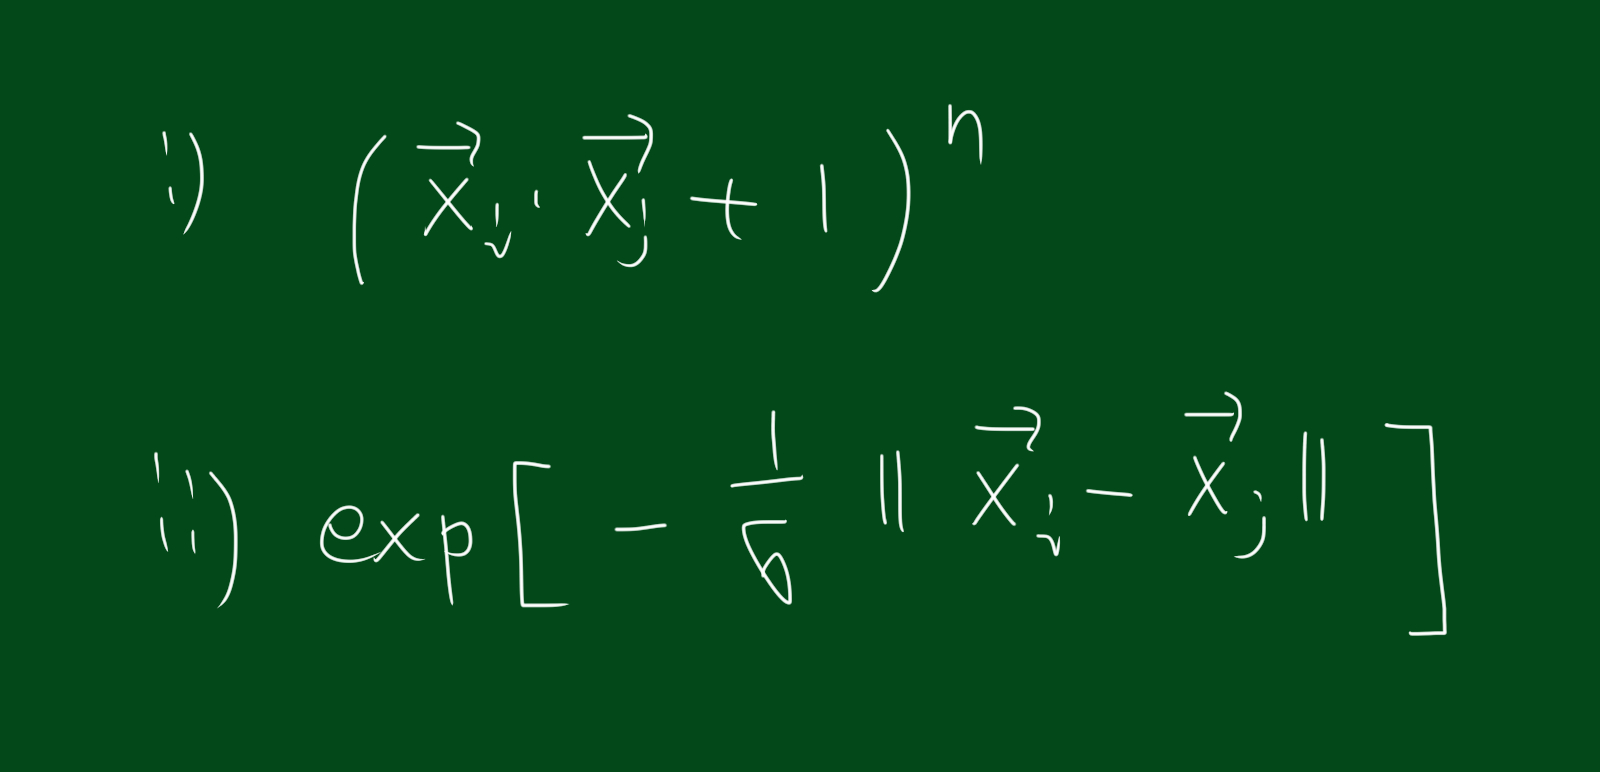 i) (x⃗ᵢ · x⃗ⱼ + 1)ⁿ
ii) exp[ - 1/σ ‖ x⃗ᵢ - x⃗ⱼ ‖ ]